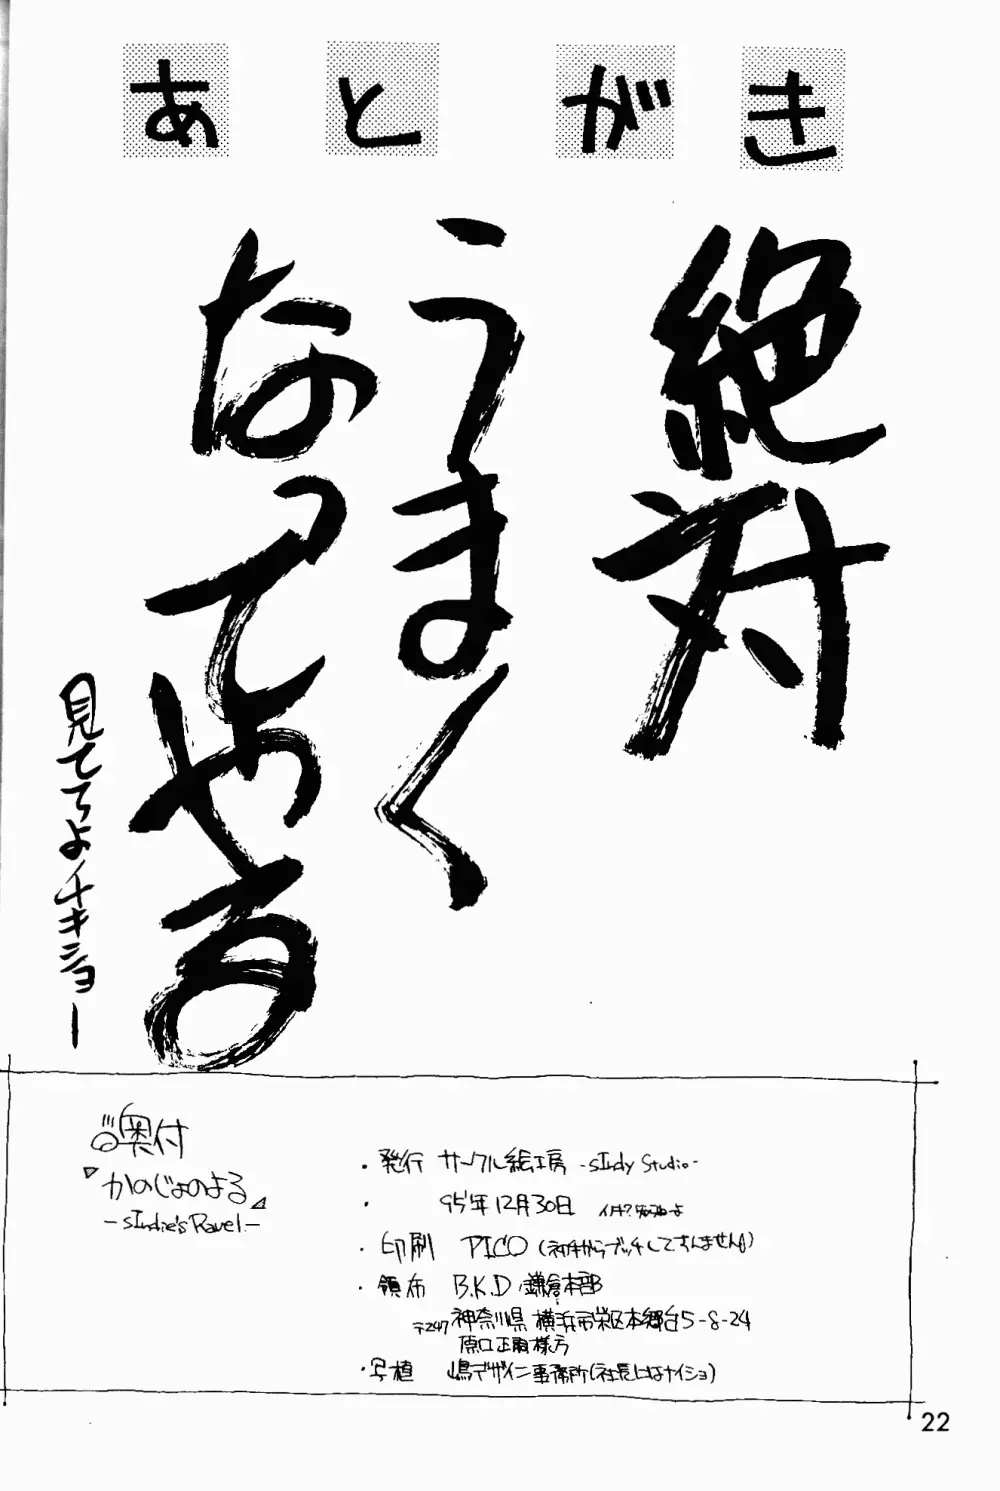 あとがき
絶対
うまく
なってやる
見てろよチキショー
奥付
『かのじょのよる』
-sIndie's Ravel-
・発行 サークル絵工房 -sIndy Studio-
・ 95年12月30日
・印刷 PICO (ネオチからブッチしてすんません)
・領布 B.K.D 鎌倉本部
〒247 神奈川県横浜市栄区本郷台5-8-24
様方
・写植 嶋デザイン事務所(社長にはナイショ)
22